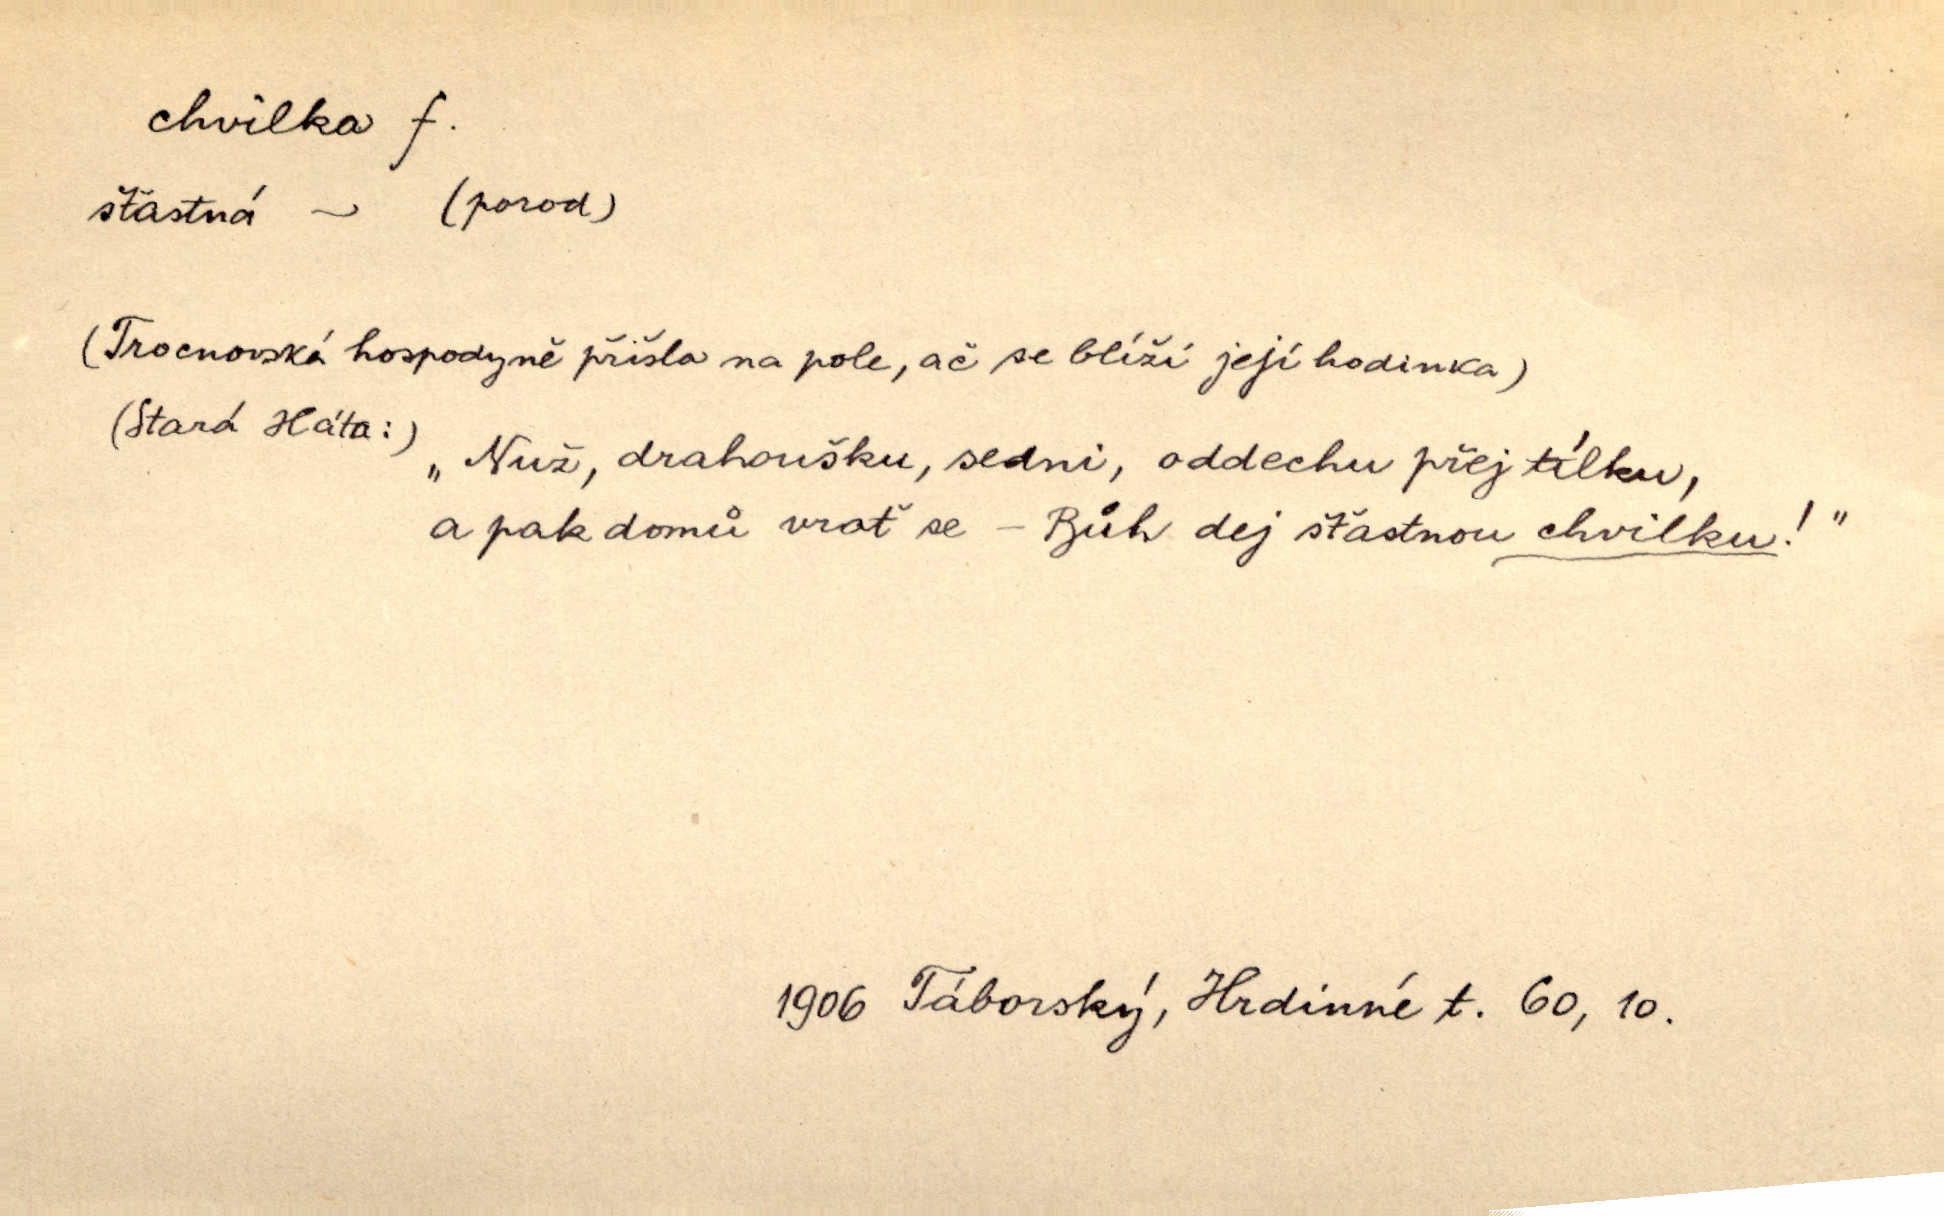 chvilka f.
šťastná ~ (porod)
(Trocnovská hospodyně přišla na pole, ač se blíží její hodinka)
(Stará Háta:)
„Nuž, drahoušku, sedni, oddechu přej tílku,
a pak domů vrať se – Bůh dej šťastnou chvilku!"
1906 Táborský, Hrdinné t. 60, 10.